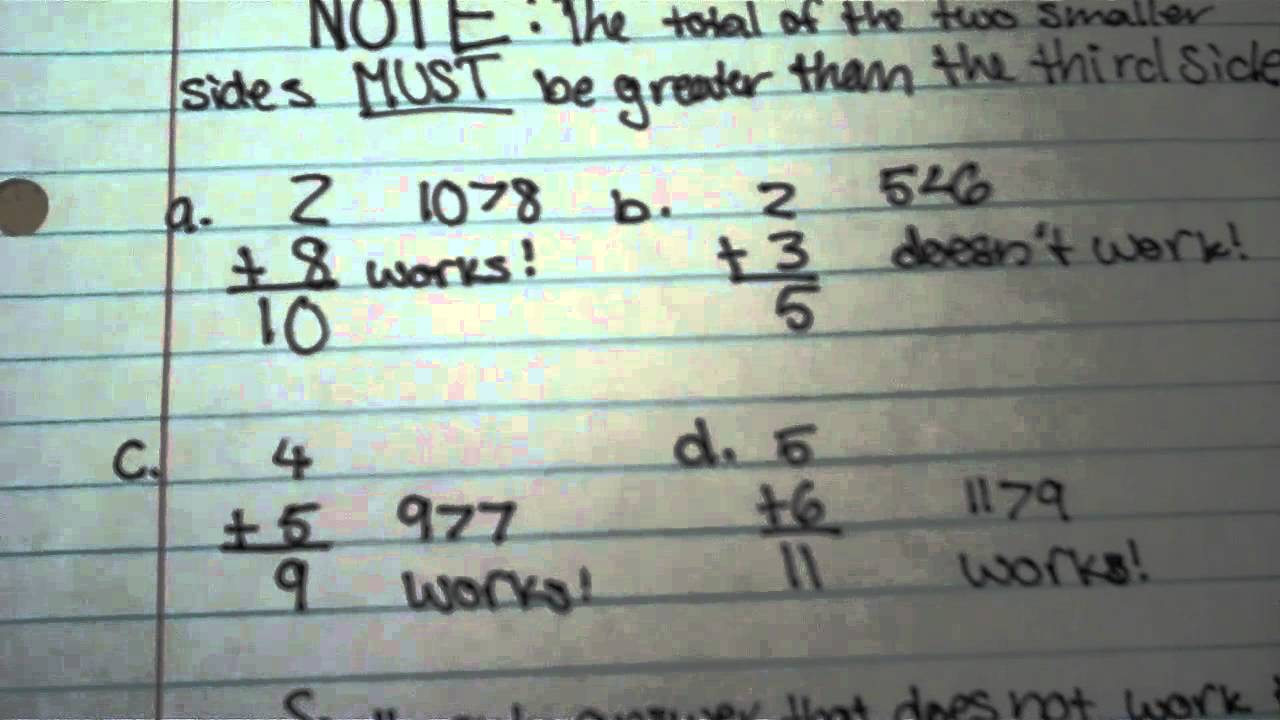 NOTE: The total of the two smaller
sides MUST be greater than the third side
a. 2 10>8 b. 2 5<6
+ 8 works! + 3 doesn't work!
10 5
c. 4 d. 5
+ 5 9>7 +6 11>9
9 works! 11 works!
answer that does not work